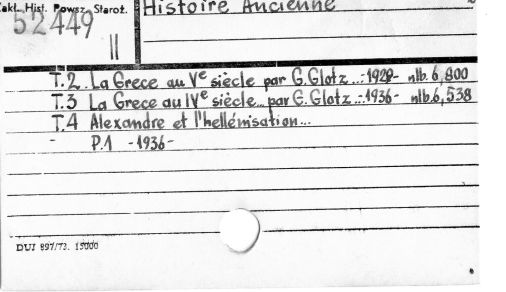 Zakł. Hist. Powsz. Staroż.
Histoire Ancienne
52449
II
T.2. La Grece au Vᵉ siècle par G. Glotz ..-1929- nlb. 6,800
T.3 La Grece au IVᵉ siècle... par G. Glotz ..-1936- nlb. 6,538
T.4 Alexandre et l'hellénisation...
- P.1 -1936-
DUI 897/73. 15000